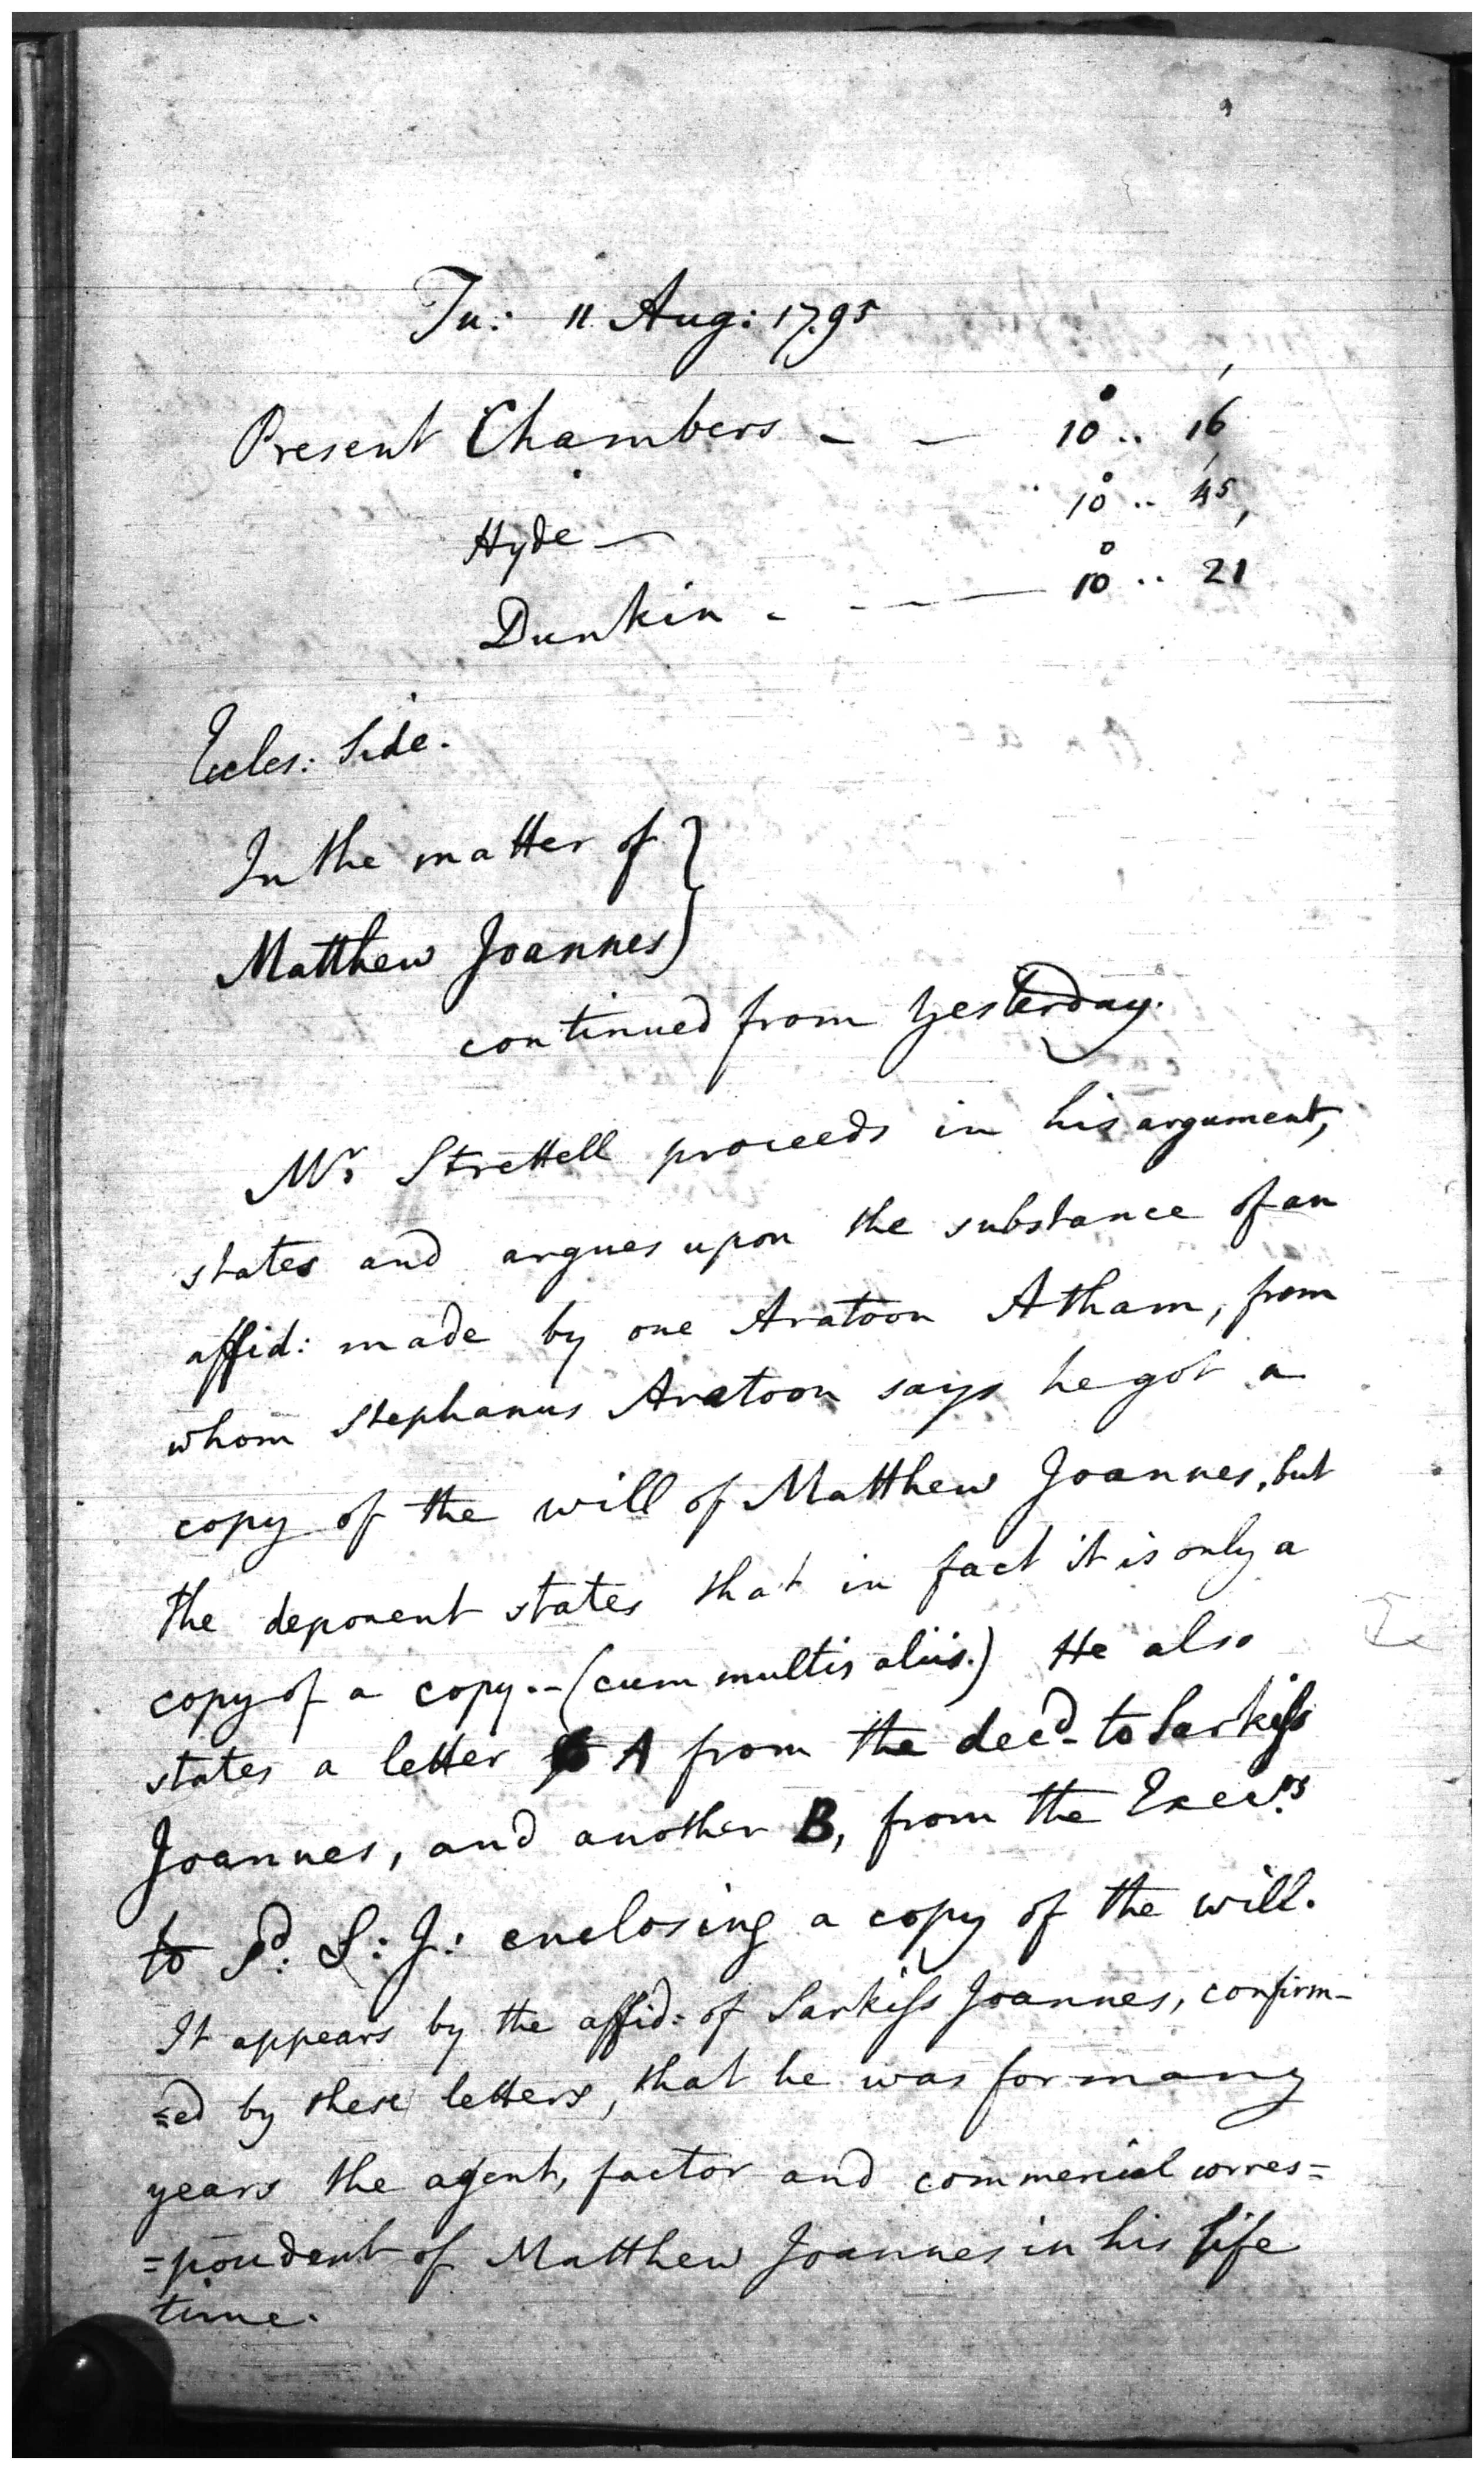 Tu: 11 Aug: 1795
Present Chambers - - 10° .. 16'
Hyde — 10° .. 45'
Dunkin - - - — 10° .. 21'
Eccles: Side.
In the matter of }
Matthew Joannes }
continued from yesterday.
Mr Strettell proceeds in his argument,
states and argues upon the substance of an
affid: made by one Aratoon Atham, from
whom Stephanus Aratoon says he got a
copy of the will of Matthew Joannes, but
the deponent states that in fact it is only a
copy of a copy.-(cum multis aliis.) He also
states a letter A from the decd- to Sarkiss
Joannes, and another B, from the Execrs
to sd: S: J: enclosing a copy of the will.
It appears by the affid: of Sarkiss Joannes, confirm-
=ed by these letters, that he was for many
years the agent, factor and commercial corres=
=pondent of Matthew Joannes in his life
time.